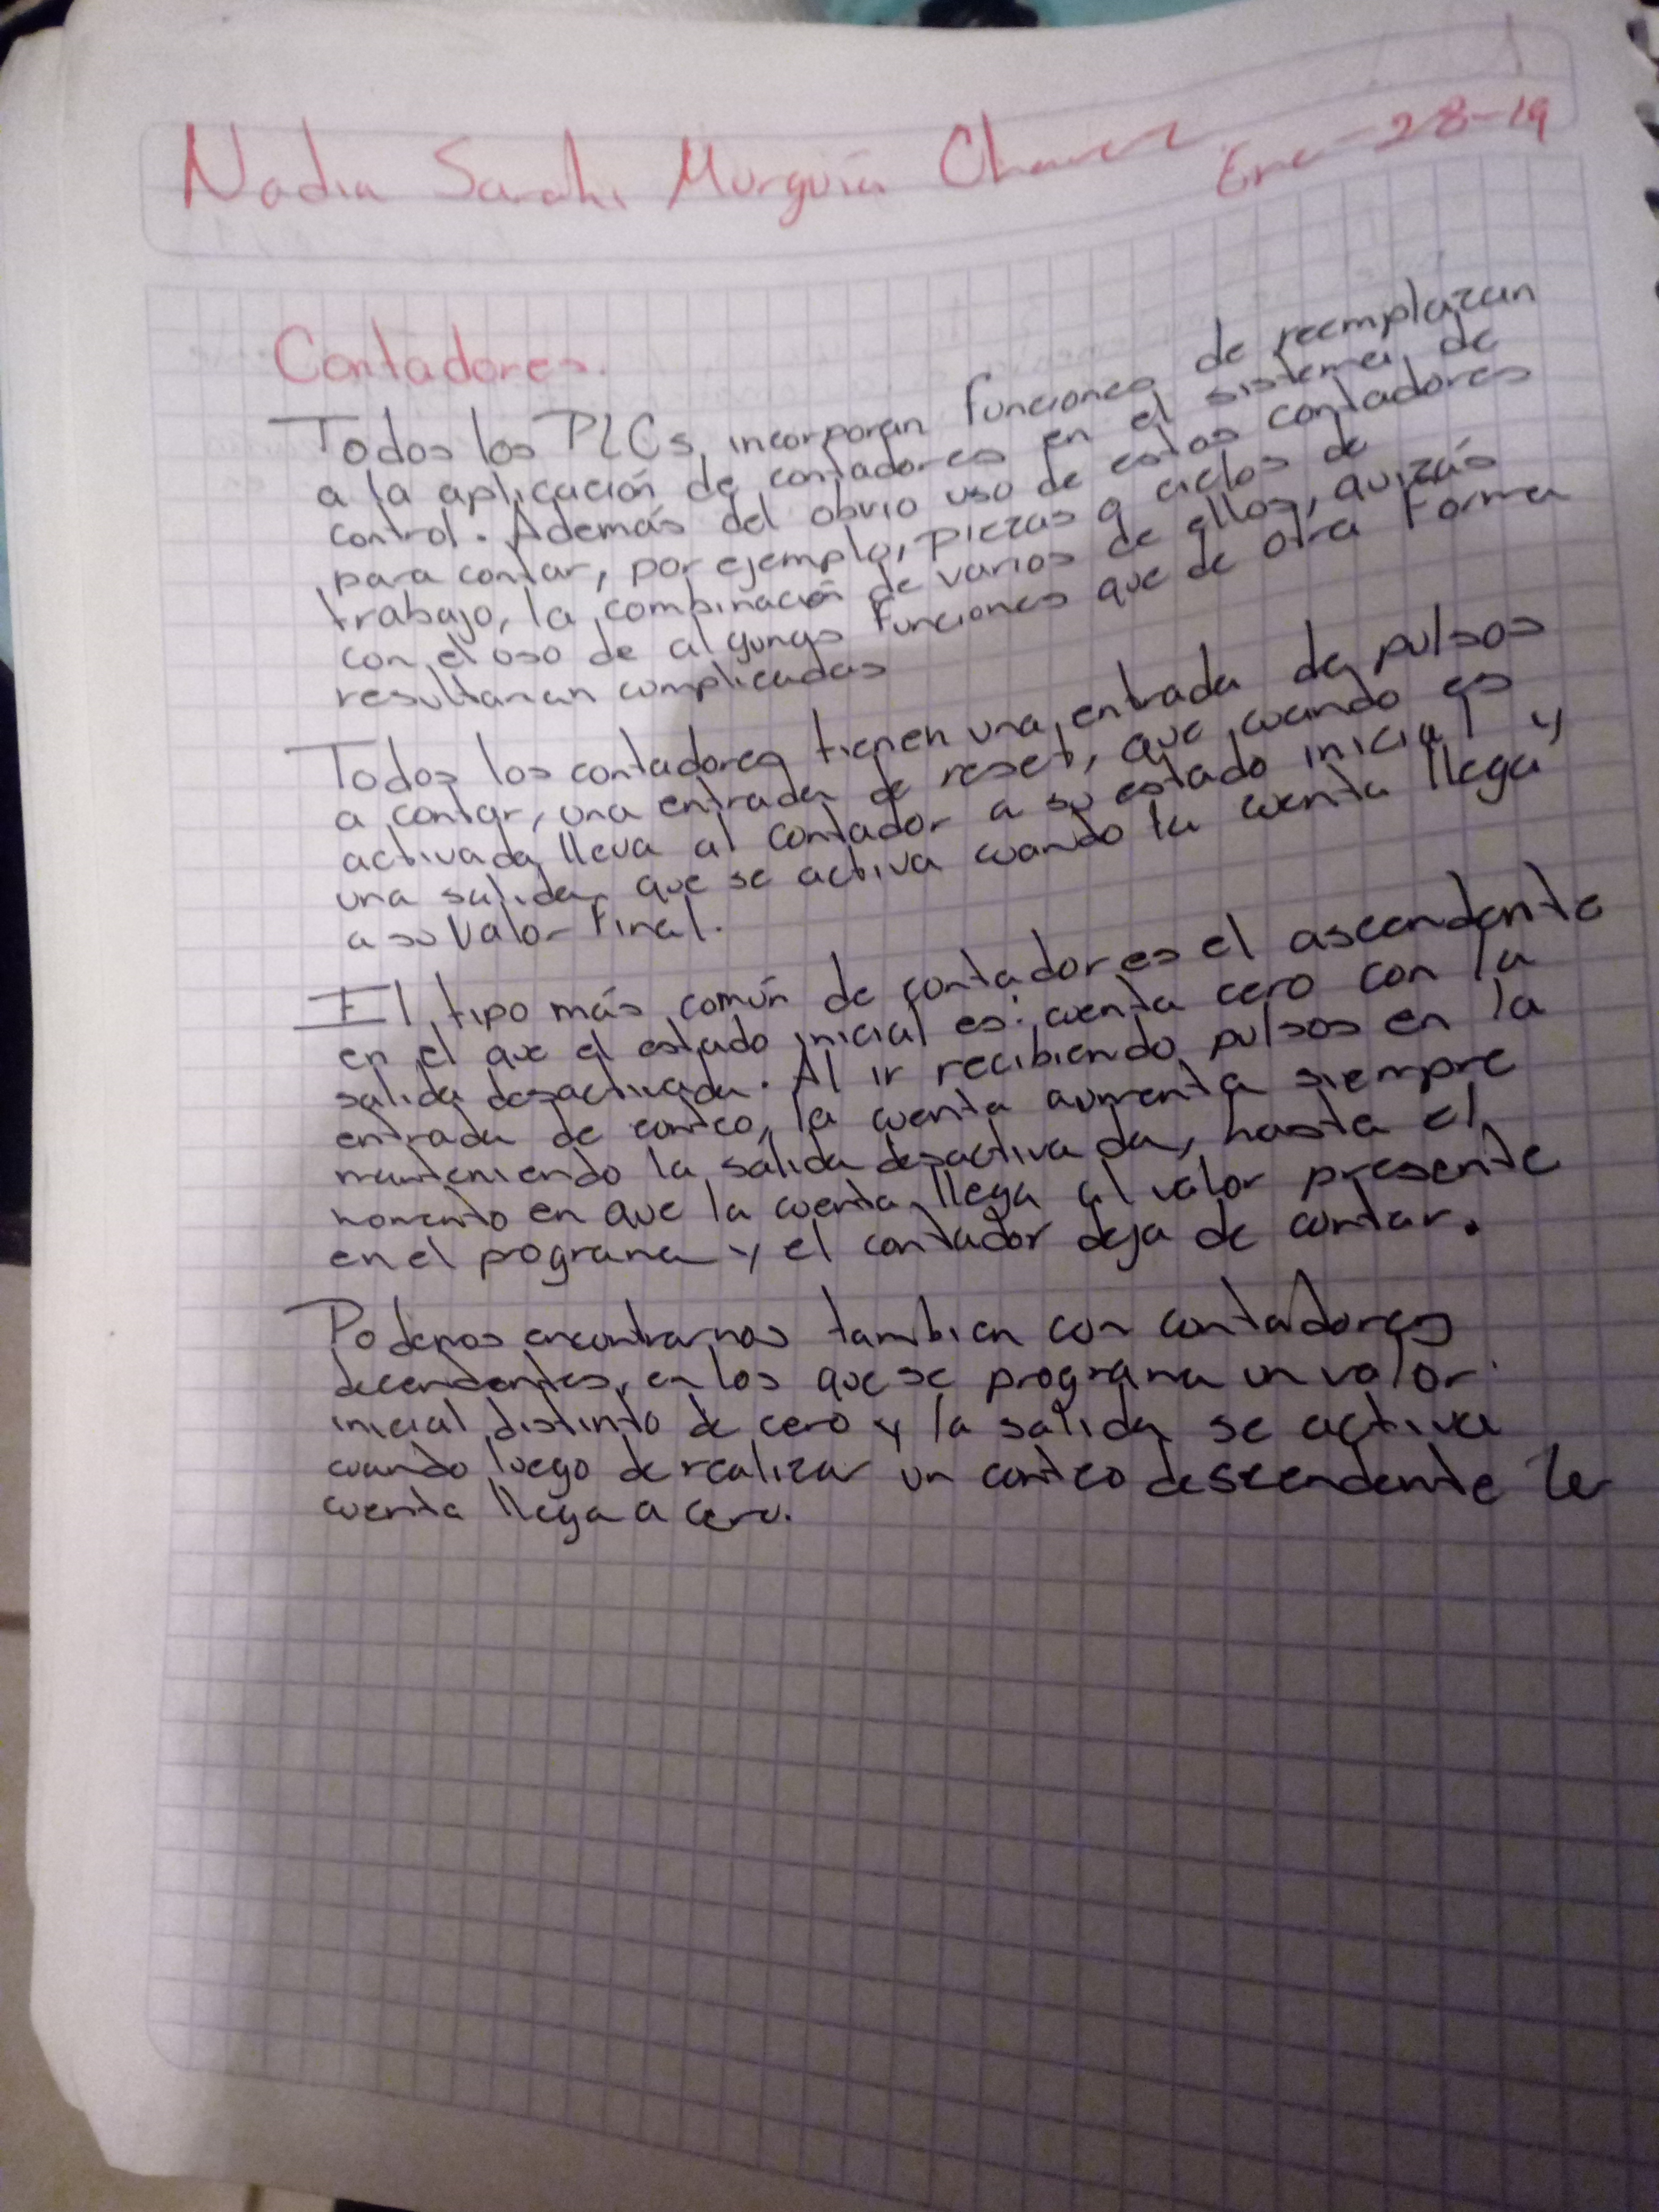 Nadia Sarahi Murguía Chavez Ene-28-19
Contadores.
Todos los PLCs incorporan funciones de reemplazan
a la aplicación de contadores en el sistema de
control. Además del obvio uso de estos contadores
para contar, por ejemplo, piezas o ciclos de
trabajo, la combinación de varios de ellos, quizás
con el uso de algunas funciones que de otra forma
resultarian complicadas
Todos los contadores tienen una entrada de pulsos
a contar, una entrada de reset, que cuando es
activada lleva al contador a su estado inicial y
una salida que se activa cuando la cuenta llega
a su valor final.
El tipo más común de contador es el ascendente
en el que el estado inicial es: cuenta cero con la
salida desactivada. Al ir recibiendo pulsos en la
entrada de conteo, la cuenta aumenta siempre
manteniendo la salida desactivada, hasta el
momento en que la cuenta llega al valor presente
en el pograma y el contador deja de contar.
Podemos encontrarnos tambien con contadores
decendentes, en los que se programa un valor
inicial distinto de cero y la salida se activa
cuando luego de realizar un conteo descendente la
cuenta llega a cero.